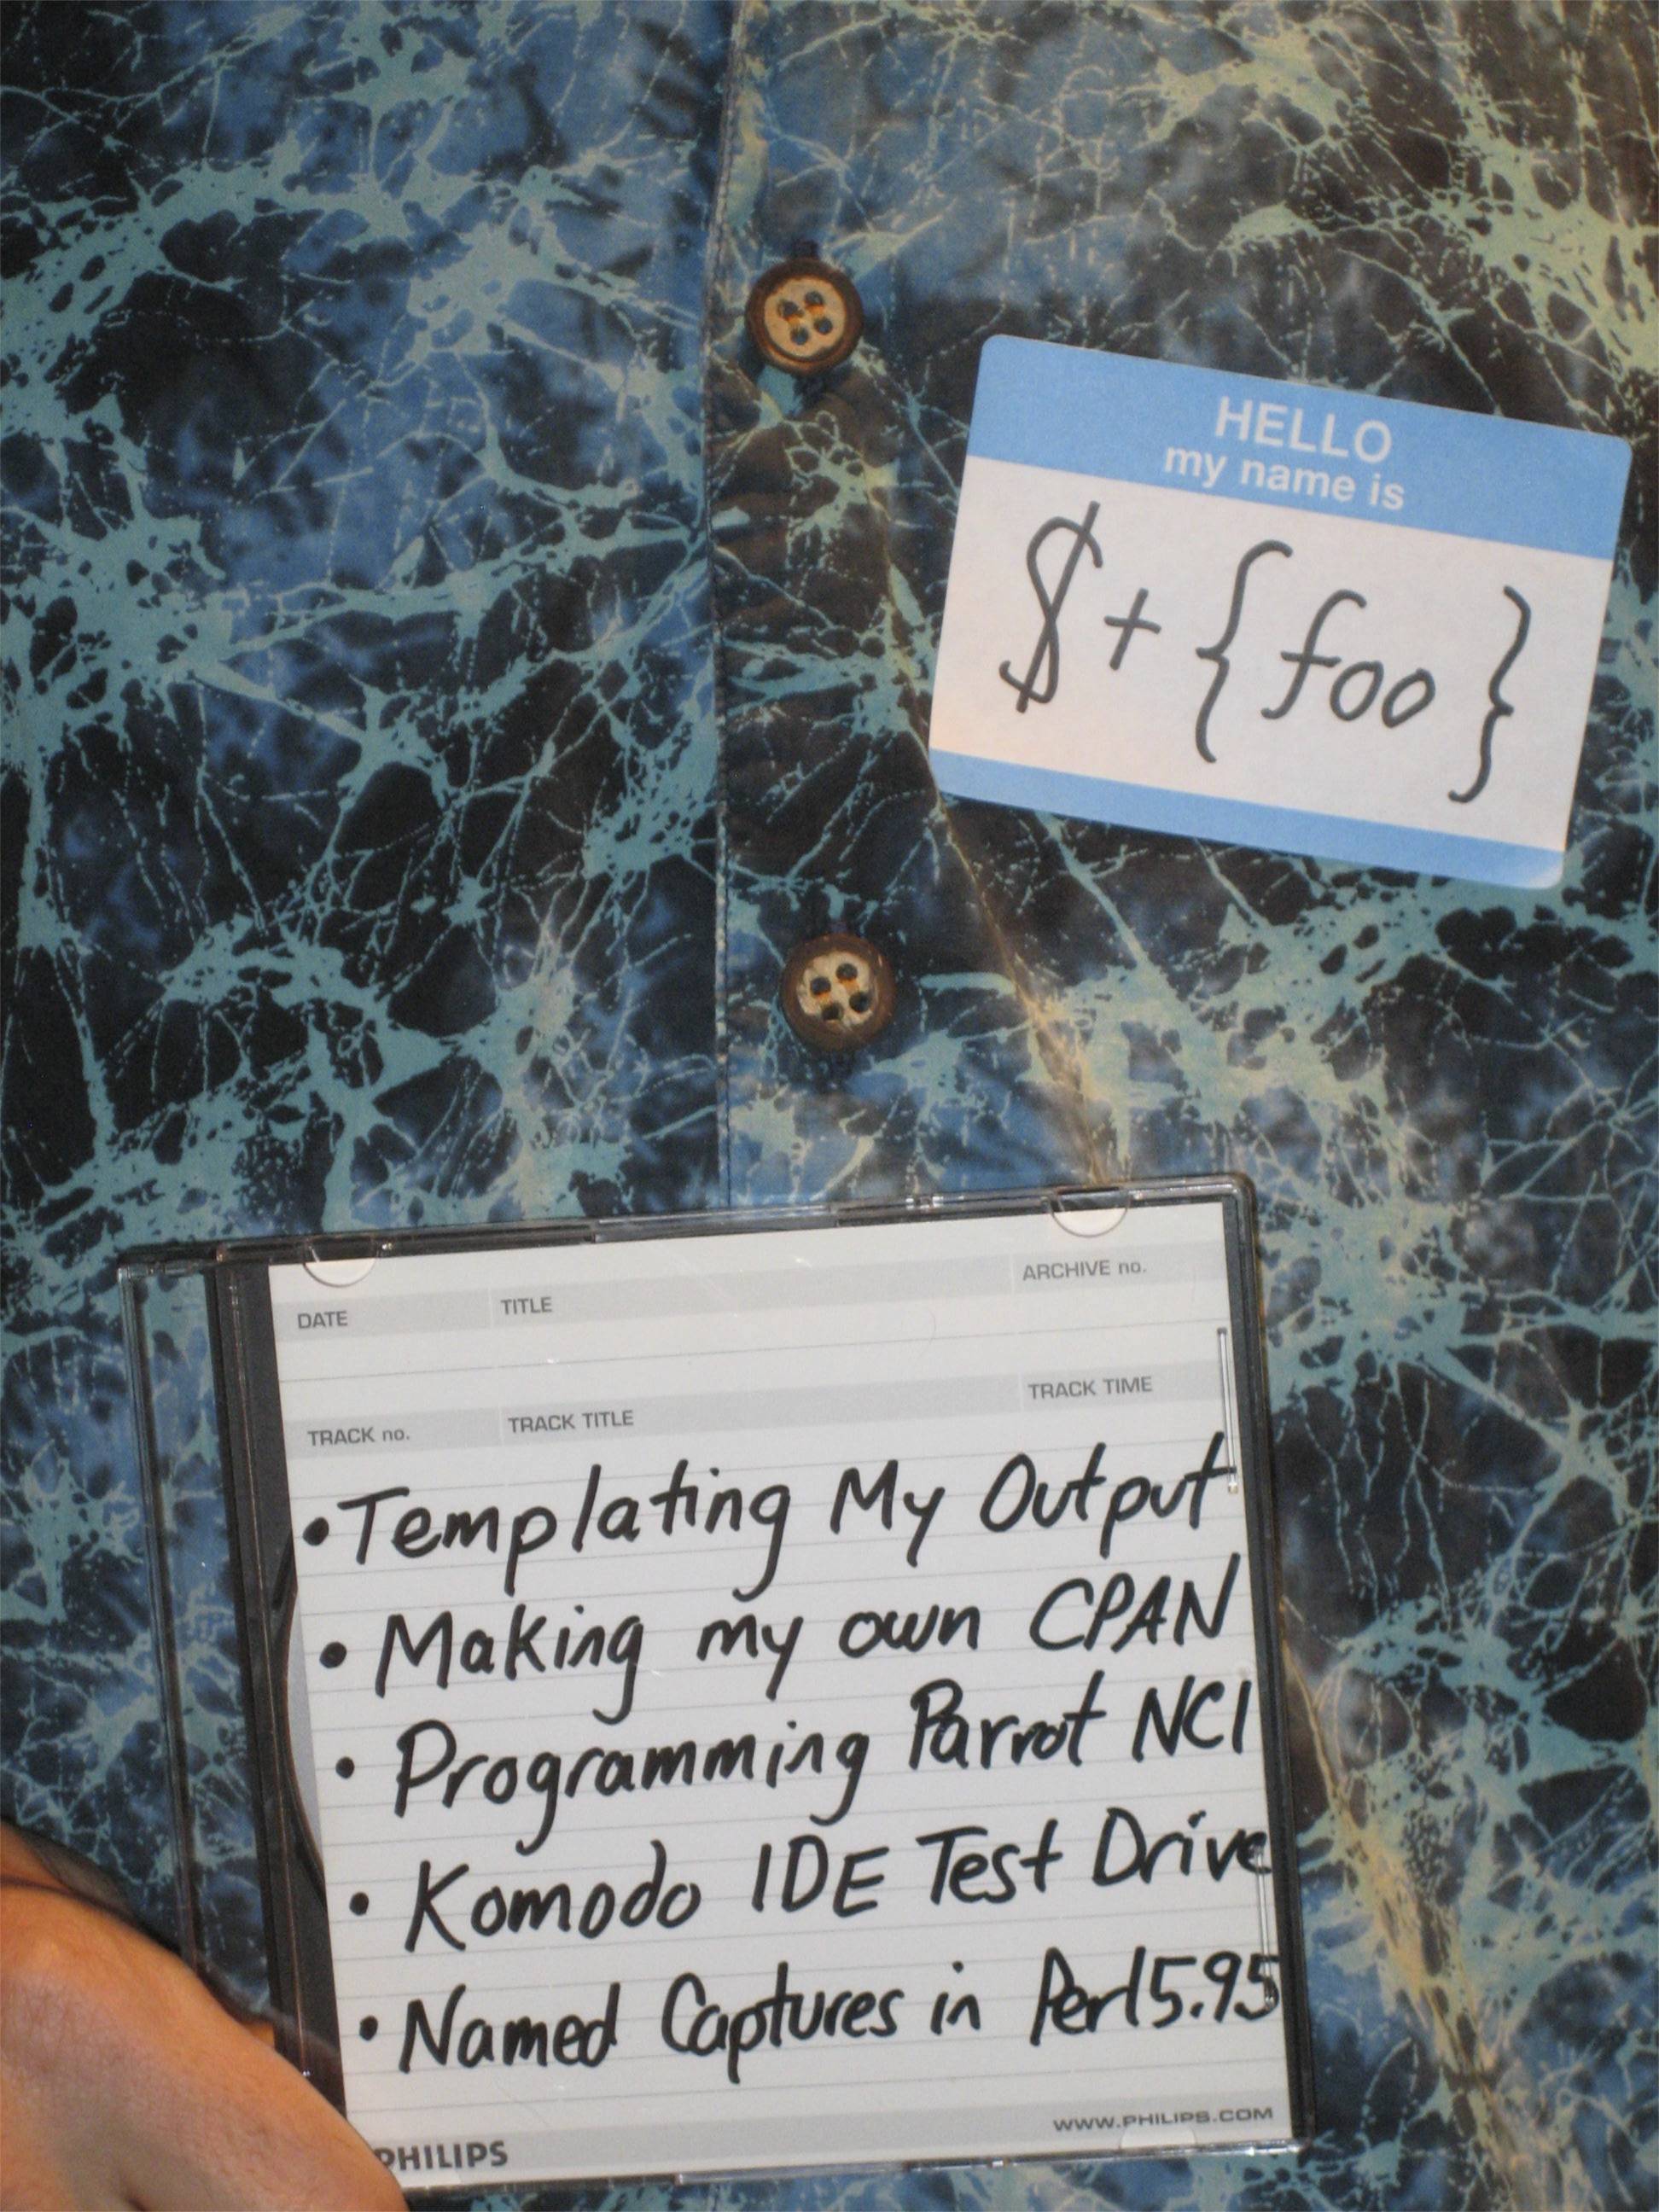 HELLO
my name is
$+{foo}
DATE TITLE ARCHIVE no.
TRACK no. TRACK TITLE TRACK TIME
•Templating My Output
• Making my own CPAN
• Programming Parrot NCI
• Komodo IDE Test Drive
• Named Captures in Perl5.95
WWW.PHILIPS.COM
PHILIPS